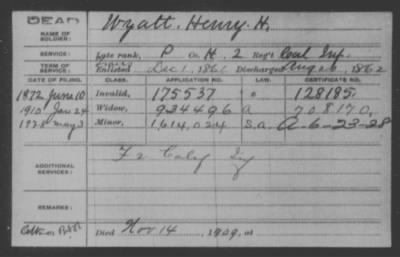 DEAD
NAME OF SOLDIER: Wyatt. Henry. H.
SERVICE: Late rank, P Co. H, 2 Reg't Coal Inf.
TERM OF SERVICE: Enlisted Dec 1, 1861 Discharged Aug 26, 1862
DATE OF FILING. CLASS. APPLICATION NO. LAW. CERTIFICATE NO.
1872 June 10 Invalid, 175537 128185
1910 Jan 24 Widow, 934496 A 708170,
1928 May 3 Minor, 1,614,024 S.a. A-6-23-28
ADDITIONAL SERVICES: F 2 Inf
REMARKS:
Died Nov 14, 1909, at